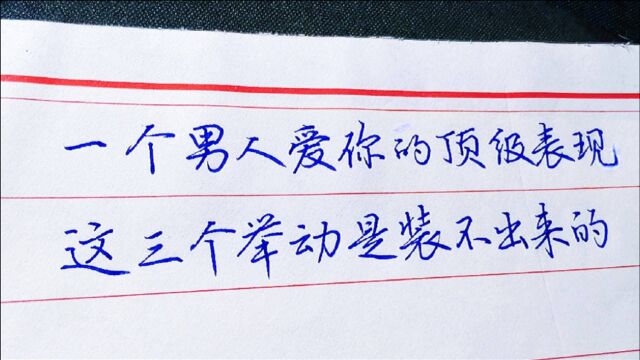 一个男人爱你的顶级表现
这三个举动是装不出来的